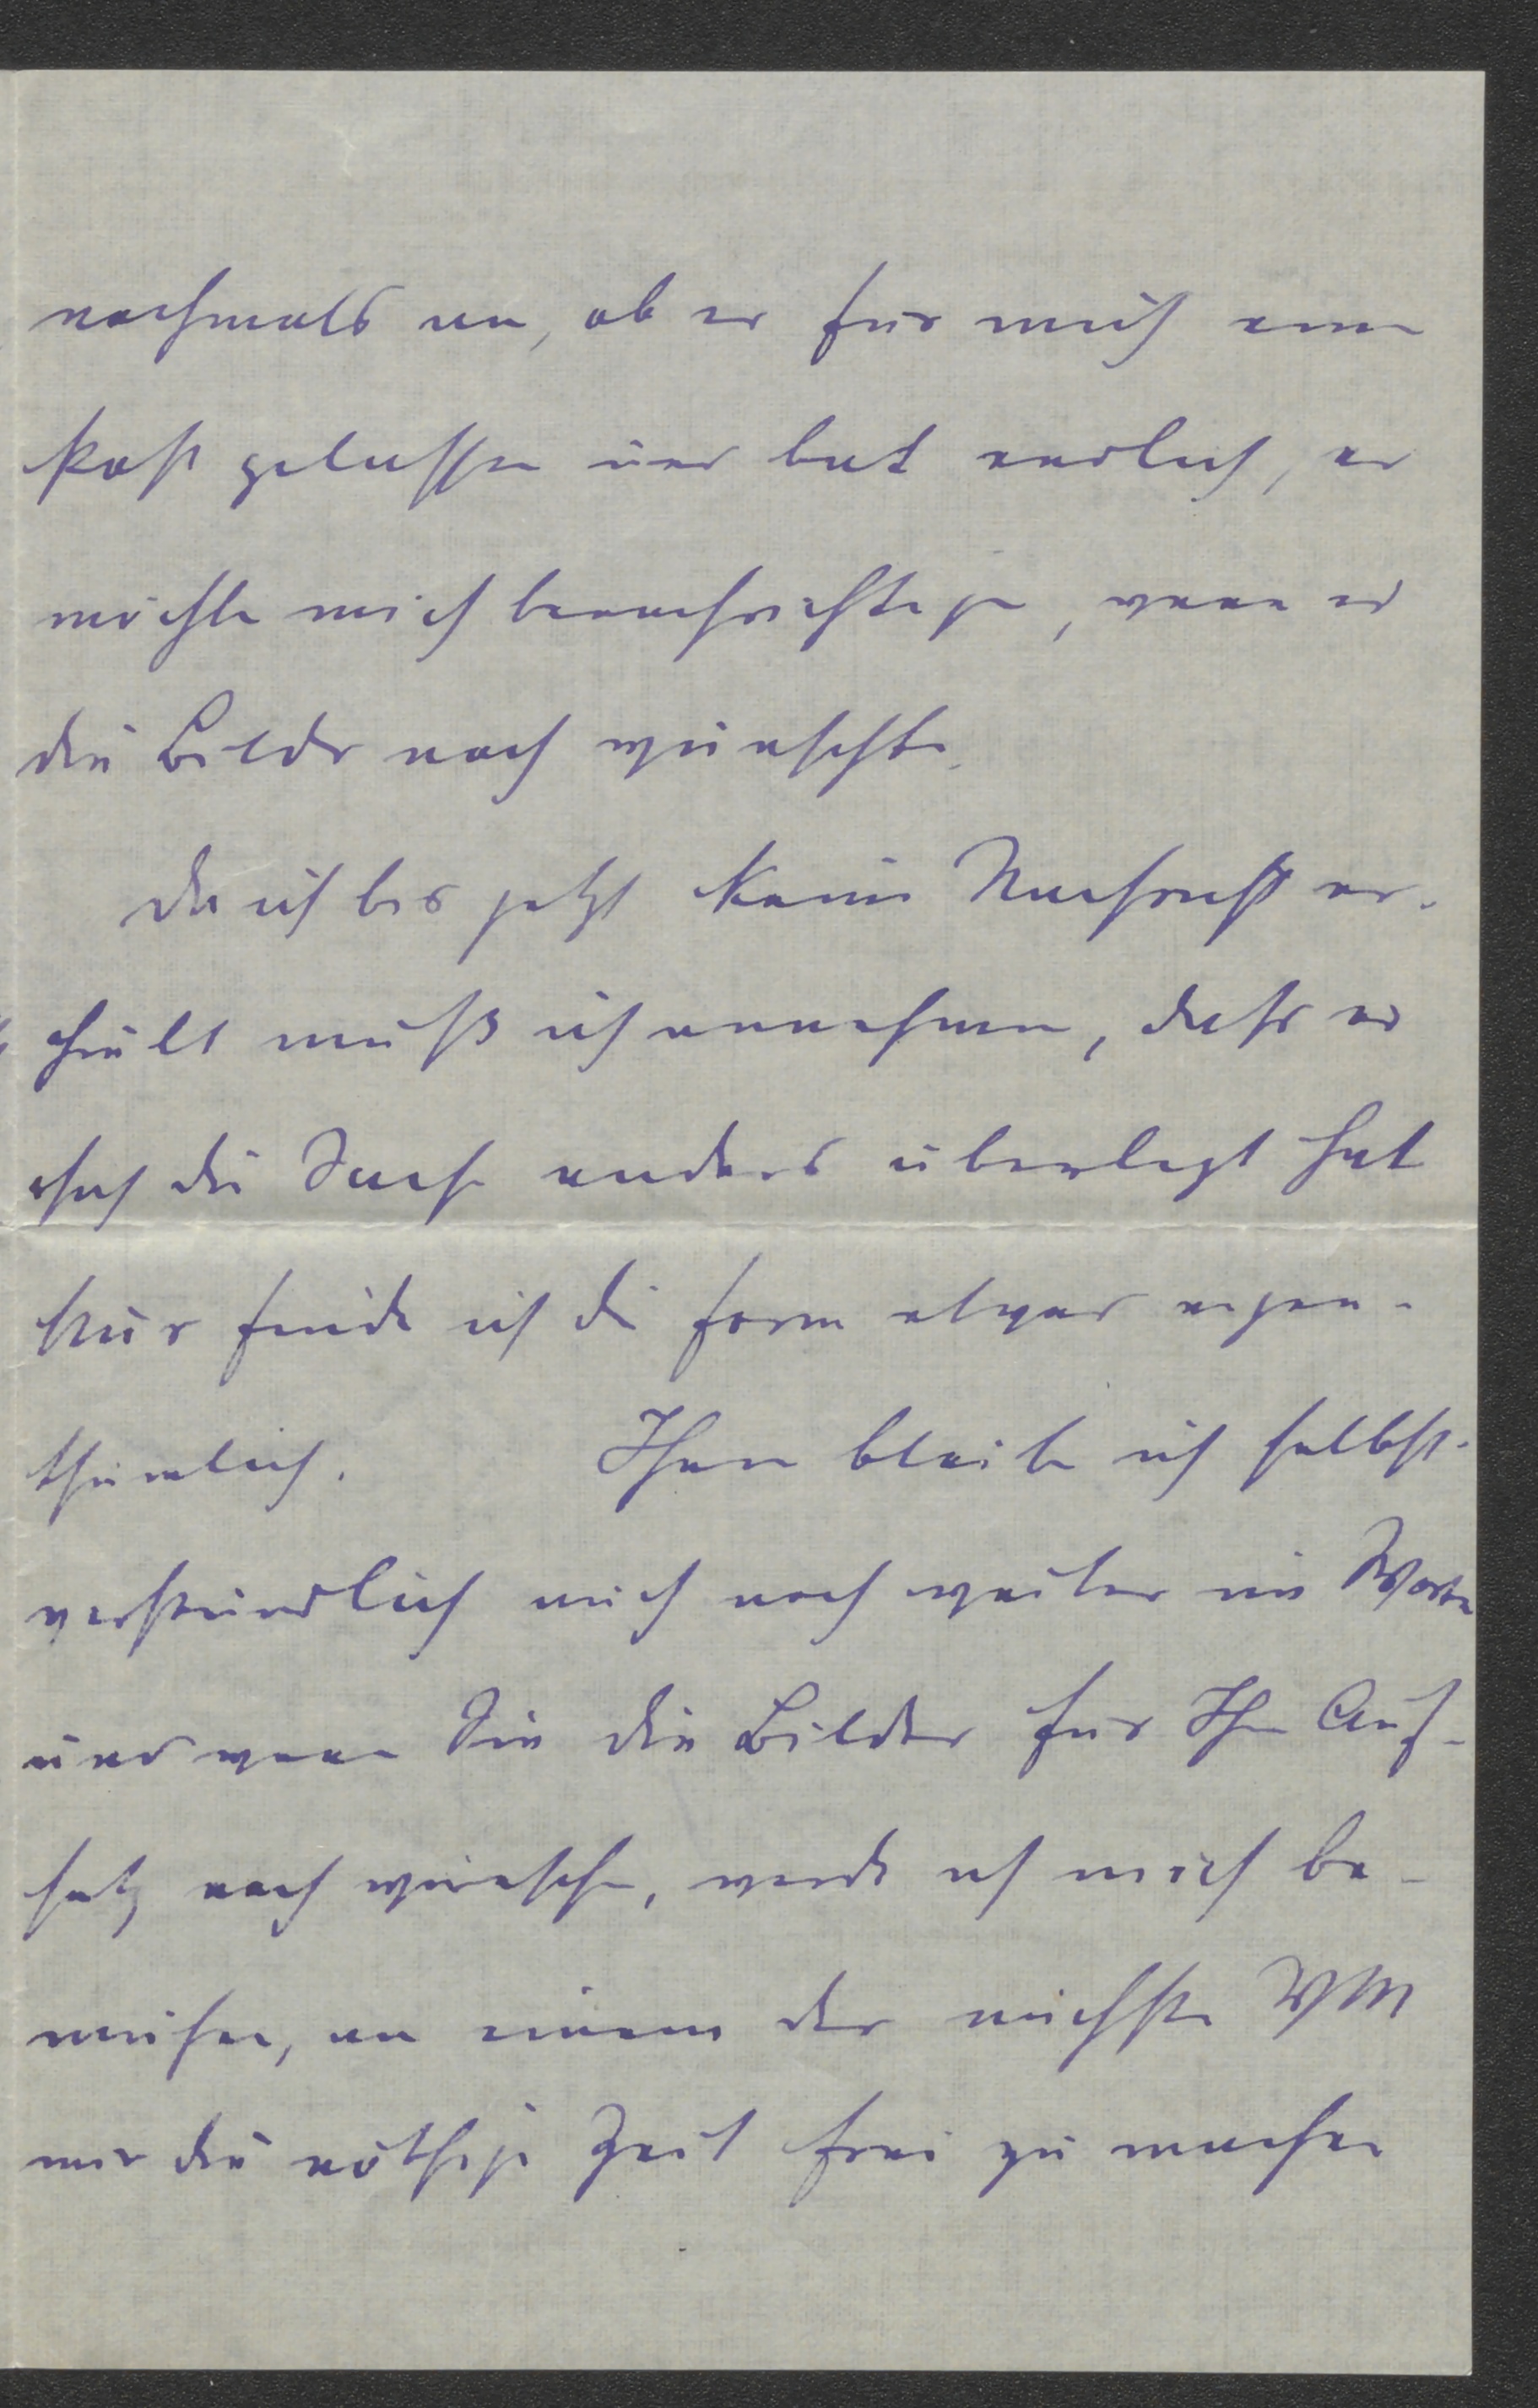 nochmals an, ob er für mich einen
Platz gelassen und bat endlich, er
möchte mich benachrichtigen, wenn er
die Bilder noch wünschte.
Da ich bis jetzt keine Nachricht er-
hielt muß ich annehmen, daß er
sich die Sache anders überlegt hat
Nur finde ich die Form etwas eigen-
thümlich. Ihnen bleibe ich selbst-
verständlich auch noch weiter im Worte
und wenn Sie die Bilder für Ihren Auf-
satz noch wünschen, werde ich mich be-
mühen, an einem der nächsten
mir die nöthige Zeit frei zu machen